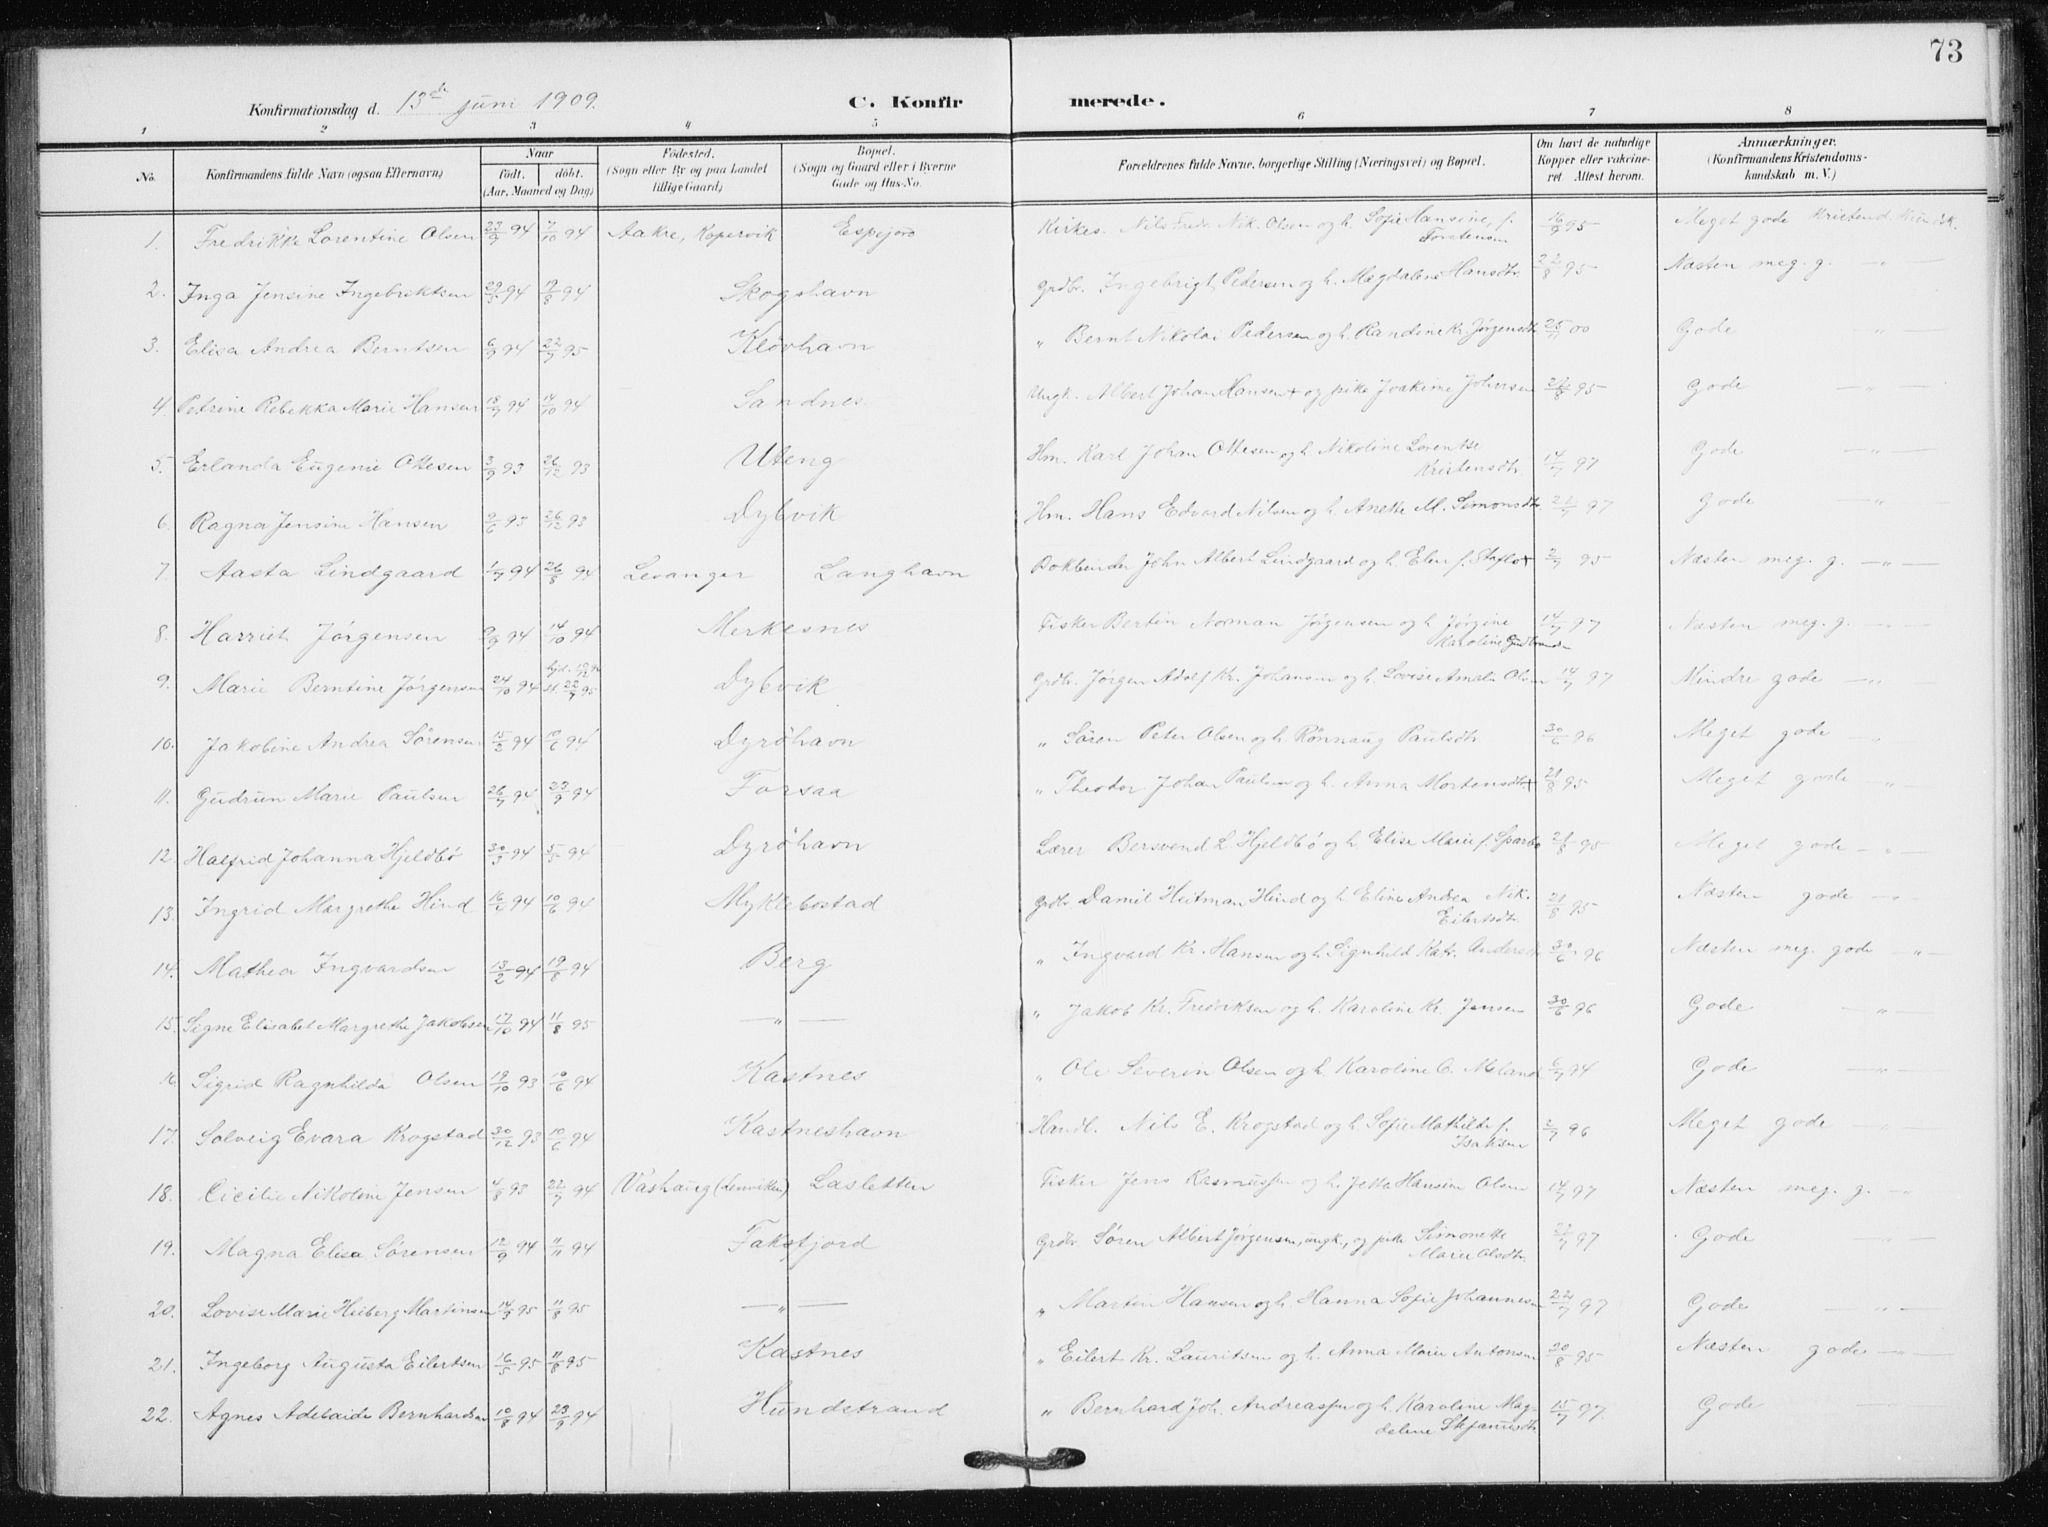 73
Konfirmationsdag d. 13de juni 1909. C. Konfirmerede.
1 2 3 4 5 6 7 8
No. Konfirmandens fulde Navn (ogsaa Efternavn) Naar født. døbt. (Aar, Maaned og Dag) Fødested. (Sogn eller By og paa Landet tillige Gaard) Bopæl. (Sogn og Gaard eller i Byerne Gade og Hus-No. Forældrenes fulde Navne, borgerlige Stilling (Næringsvei) og Bopæl. Om havt de naturlige Kopper eller vakcineret. Attest herom. Anmærkninger. (Konfirmandens Kristendomskundskab m. V.)
1. Fredrikke Lorentine Olsen 23/9 94 7/10 94 Aakre, Kopervik Espejord Kirkes. Nils Fredr. Nik. Olsen og h. Sofie Hansine, f. Torstensen 16/9 95 Meget gode Kristend. Kundsk.
2. Inga Jensine Ingebriktsen 29/5 94 19/8 94 Skogshavn Grdbr. Ingebrigt Pedersen og h. Magdalene Hansdtr. 22/8 95 Næsten meg. g. — " —
3. Elisa Andrea Berntsen 6/9 94 22/7 95 Kløvhavn " Bernt Nikolai Pedersen og h. Randine Kr. Jørgensdtr. 25/11 00 Gode — " —
4. Petrine Rebekka Marie Hansen 18/7 94 14/10 94 Sandnes Ungk. Albert Johan Hansen + og pike Joakime Johnsen 22/8 95 Gode — " —
5. Erlanda Eugenie Ottesen 3/9 93 26/12 93 Uteng Hm. Karl Johan Ottesen og h. Nikoline Lorentse Kristensdtr. 14/7 97 Gode — " —
6. Ragna Jensine Hansen 9/6 93 26/12 93 Dybvik Hm. Hans Edvard Nilsen og h. Anette M. Simonsdtr. 22/7 97 Gode — "
7. Aasta Lindgaard 1/7 94 26/8 94 Levanger Langhavn Bokbinder John Albert Lindgaard og h. Elen f. Staflo + 2/7 95 Næsten meg. g. — " —
8. Harriet Jørgensen 9/9 94 14/10 94 Merkesnes Fisker Bertin Norman Jørgensen og h. Jørgine Karoline Gudbrandsen 14/7 97 Næsten meg. g. — " —
9. Marie Berntine Jørgensen 24/10 94 hjd. 10/12 94 st. 22/7 95 Dybvik Grdbr. Jørgen Adolf Kr. Johansen og h. Lovise Amalie Olsen 14/7 97 Mindre gode — " —
10. Jakobine Andrea Sørensen 15/2 94 10/6 94 Dyröhavn " Søren Peter Olsen og h. Rønnaug Paulsdtr. 30/6 96 Meget gode "
11. Gudrun Marie Paulsen 26/7 94 23/9 94 Forsaa " Theodor Johan Paulsen og h. Anna Mortensdtr + 21/8 95 Meget gode — " —
12. Halfrid Johanna Hjeldbö 30/3 94 5/5 94 Dyröhavn Lærer Bersvend L. Hjeldbö og h. Elise Marie f. Sparbo 21/8 95 Meget gode — " —
13. Ingrid Margrethe Hind 16/2 94 10/6 94 Myklebostad Grdbr. Daniel Heitman Hind og h. Eline Andrea Nik. Eilertsdtr. 21/8 95 Næsten gode — " —
14. Mathea Ingvardsen 13/2 94 19/8 94 Berg " Ingvard Kr. Hansen og h. Signhild Katr. Andersdtr. 30/6 96 Næsten meg. gode — " —
15. Signe Elisabet Margrethe Jakobsen 17/10 94 11/8 95 — " — " Jakob Kr. Fredriksen og h. Karoline Kr. Jensen 30/6 96 Gode — " —
16. Sigrid Ragnhilda Olsen 19/10 93 10/6 94 Kastnes " Ole Severin Olsen og h. Karoline C. Meland 6/7 94 Gode — " —
17. Solveig Evara Krogstad 30/12 93 10/6 94 Kastneshavn Handl. Nils E. Krogstad og h. Sofie Mathilde f. Isaksen 2/7 96 Meget gode — " —
18. Cicilie Nikoline Jensen 4/8 93 22/7 94 Vashaug (Lenviken) Lasletten Fisker Jens Rasmussen og h. Jetta Hansine Olsen 14/7 97 Næsten meg. g. — " —
19. Magna Elisa Sørensen 12/9 94 11/11 94 Fakstjord Grdbr. Søren Albert Jørgensen, ungk., og pike Simonette Marie Olsdtr. 22/7 97 Gode — " —
20. Lovise Marie Heiberg Martinsen 14/3 95 11/8 95 — " — " Martin Hansen og h. Hanna Sofie Johannesen 22/7 97 Gode — " —
21. Ingeborg Augusta Eilertsen 16/5 95 11/8 95 Kastnes " Eilert Kr. Lauritsen og h. Anna Marie Antonsen 20/8 95 Næsten gode — " —
22. Agnes Adelaide Bernhardsen 10/8 94 23/9 94 Hundstrand " Bernhard Joh. Andreassen og h. Karoline Magdelene Stefanusdtr. 15/7 97. Gode